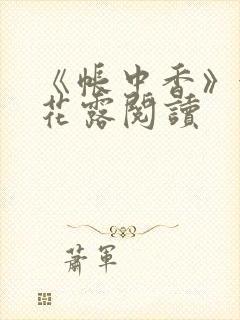 《帳中香》
花露閱讀
蕭軍